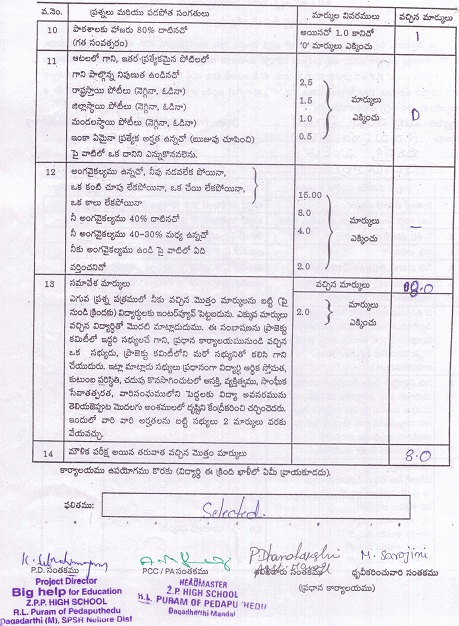 వ.నెం. ప్రశ్నలు మరియు పదపోత సంగతులు మార్కుల వివరములు వచ్చిన మార్కులు
10 పాఠశాలకు హాజరు 80% దాటినచో అయినచో 1.0 కానిచో 1
(గత సంవత్సరం) '0' మార్కులు ఎక్కించు
11 ఆటలలో గాని, ఇతర ప్రత్యేకమైన పోటీలలో
గాని పాల్గొన్న నిపుణుత ఉండినచో
రాష్ట్రస్థాయి పోటీలు (నెగ్గినా, ఓడినా) 2.5
జిల్లాస్థాయి పోటీలు (నెగ్గినా, ఓడినా) 1.5 మార్కులు
మండలస్థాయి పోటీలు (నెగ్గినా, ఓడినా) 1.0 ఎక్కించు 0
ఇంకా ఏమైనా ప్రత్యేక అర్హత ఉన్నచో (ఋజువు చూపించి) 0.5
పై వాటిలో ఒక దానిని ఎన్నుకొనవలెను.
12 అంగవైకల్యము ఉన్నచో, నీవు నడవలేక పోయినా,
ఒక కంటి చూపు లేకపోయినా, ఒక చేయి లేకపోయినా, 15.00
ఒక కాలు లేకపోయినా
నీ అంగవైకల్యము 40% దాటినచో 8.0 మార్కులు
నీ అంగవైకల్యము 40-30% మధ్య ఉన్నచో 4.0 ఎక్కించు –
నీకు అంగవైకల్యము ఉండి పై వాటిలో ఏది
వర్తించనిచో 2.0
13 సమావేశ మార్కులు వచ్చిన మార్కులు 2.0
ఎగువ ప్రశ్న పత్రములో నీకు వచ్చిన మొత్తం మార్కులను బట్టి (పై 2.0 మార్కులు
నుండి క్రిందకు) విద్యార్థులకు ఇంటర్వ్యూవ్ పెట్టబడును. ఎక్కువ మార్కులు ఎక్కించు
వచ్చిన విద్యార్థితో మొదటి మాట్లాడుదుము. ఈ సంభాషణను ప్రాజెక్టు
కమిటీలో ఇద్దరి సభ్యులచే గాని, ప్రధాన కార్యాలయమునుండి వచ్చిన
ఒక సభ్యుడు, ప్రాజెక్టు కమిటీలోని మరో సభ్యునితో కలిసి గాని
చేయుదురు. ఇట్లా మాట్లాడు సభ్యులు ప్రధానంగా విద్యార్థి ఆర్థిక స్తోమత,
కుటుంబ పరిస్థితి, చదువు కొనసాగించుటలో ఆసక్తి, వ్యక్తిత్వము, సాంఘీక
సేవాతత్పరత, వారిసంఘములోని పెద్దలకు విద్యా అవసరమును
తెలియజెప్పుట మొదలగు అంశములలో దృష్టిని కేంద్రీకరించి చర్చించెదరు.
ఇందులో వారి వారి అర్హతలను బట్టి సభ్యులు 2 మార్కులు వరకు
వేయవచ్చు.
14 మౌళిక పరీక్ష అయిన తరువాత వచ్చిన మొత్తం మార్కులు 8.0
కార్యాలయము ఉపయోగము కొరకు (విద్యార్థి ఈ క్రింది ఖాళీలో ఏమీ వ్రాయకూడదు).
ఫలితము: Selected.
P.D. సంతకము PCC / PA సంతకము సంతకము M. Sarojini
ధృవీకరించువారి సంతకము
(ప్రధాన కార్యాలయము)
Project Director
Big help for Education
Z.P.P. HIGH SCHOOL
R.L. Puram of Pedaputhedu
Dagadarthi (M), SPSR Nellore Dist
HEADMASTER
Z.P. HIGH SCHOOL
R.L. PURAM OF PEDAPUTHEDU
Dagadharthi Mandal